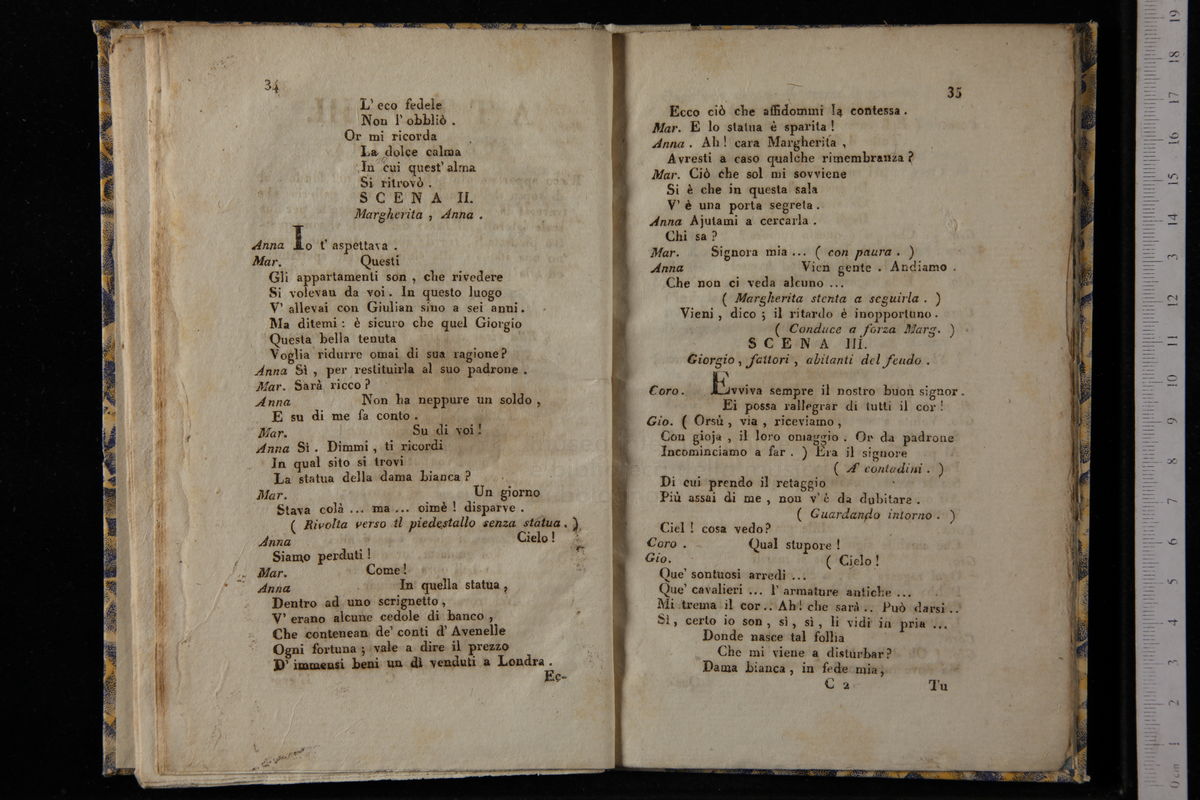 34
L' eco fedele
Non l' obbliò .
Or mi ricorda
La dolce calma
In cui quest' alma
Si ritrovò .
SCENA II.
Margherita , Anna .
Anna Io t' aspettava .
Mar. Questi
Gli appartamenti son , che rivedere
Si volevan da voi . In questo luogo
V' allevai con Giulian sino a sei anni .
Ma ditemi : è sicuro che quel Giorgio
Questa bella tenuta
Voglia ridurre omai di sua ragione ?
Anna Sì , per restituirla al suo padrone .
Mar. Sarà ricco ?
Anna Non ha neppure un soldo ,
E su di me fa conto .
Mar. Su di voi !
Anna Sì . Dimmi , ti ricordi
In qual sito si trovi
La statua della dama bianca ?
Mar. Un giorno
Stava colà ... ma ... oimè ! disparve .
( Rivolta verso il piedestallo senza statua . )
Anna Cielo !
Siamo perduti !
Mar. Come !
Anna In quella statua ,
Dentro ad uno scrignetto ,
V' erano alcune cedole di banco ,
Che contenean de' conti d' Avenelle
Ogni fortuna ; vale a dire il prezzo
D' immensi beni un dì venduti a Londra .
Ec-
35
Ecco ciò che affidommi la contessa .
Mar. E lo statua è sparita !
Anna . Ah ! cara Margherita ,
Avresti a caso qualche rimembranza ?
Mar. Ciò che sol mi sovviene
Si è che in questa sala
V' è una porta segreta .
Anna Ajutami a cercarla .
Chi sa ?
Mar. Signora mia ... ( con paura . )
Anna Vien gente . Andiamo .
Che non ci veda alcuno ...
( Margherita stenta a seguirla . )
Vieni , dico ; il ritardo è inopportuno .
( Conduce a forza Marg. )
SCENA III.
Giorgio , fattori , abitanti del feudo .
Coro . Evviva sempre il nostro buon signor .
Ei possa rallegrar di tutti il cor !
Gio. ( Orsù , via , riceviamo ,
Con gioja , il loro omaggio . Or da padrone
Incominciamo a far . ) Era il signore
( A' contadini . )
Di cui prendo il retaggio
Più assai di me , non v' è da dubitare .
( Guardando intorno . )
Ciel ! cosa vedo ?
Coro . Qual stupore !
Gio. ( Cielo !
Que' sontuosi arredi ...
Que' cavalieri ... l' armature antiche ...
Mi trema il cor .. Ah ! che sarà .. Può darsi ..
Sì , certo io son , sì , sì , li vidi in pria ...
Donde nasce tal follia
Che mi viene a disturbar ?
Dama bianca , in fede mia ,
C 2
Tu
0 cm 1 2 3 4 5 6 7 8 9 10 11 12 13 14 15 16 17 18 19